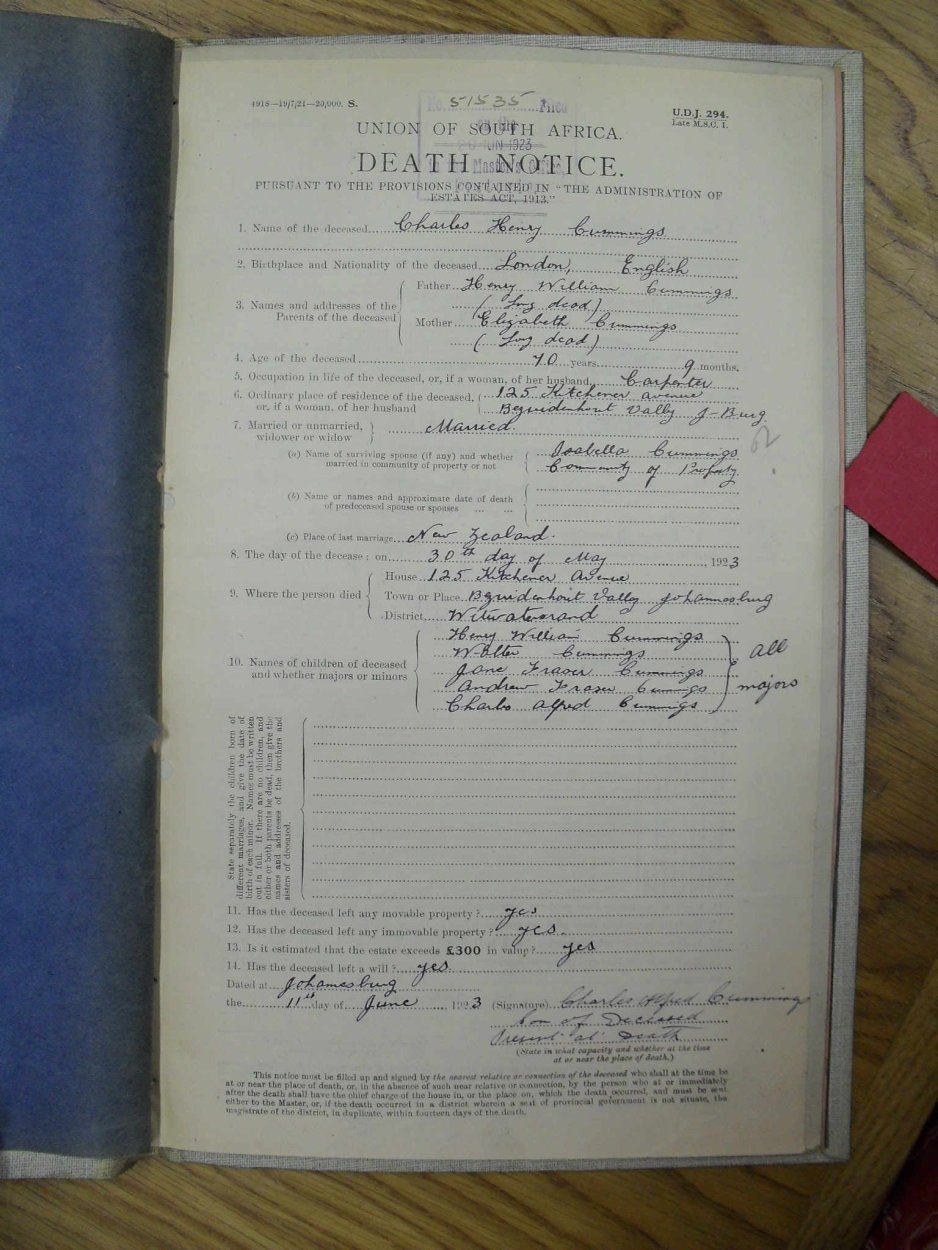 1918—19/7/21—20,000. S.
No. 51535 Filed
on the
JUN 1923
Master's Office
U.D.J. 294.
Late M.S.C. 1.
UNION OF SOUTH AFRICA.
DEATH NOTICE.
PURSUANT TO THE PROVISIONS CONTAINED IN "THE ADMINISTRATION OF
ESTATES ACT, 1913."
1. Name of the deceased Charles Henry Cummings
2. Birthplace and Nationality of the deceased London, English
3. Names and addresses of the Parents of the deceased
Father Henry William Cummings
(Long dead)
Mother Elizabeth Cummings
(Long dead)
4. Age of the deceased 70 years 9 months.
5. Occupation in life of the deceased, or, if a woman, of her husband Carpenter
6. Ordinary place of residence of the deceased, 125 Kitchener Avenue
or, if a woman, of her husband Bezuidenhout Vally J-Burg
7. Married or unmarried, widower or widow Married
(a) Name of surviving spouse (if any) and whether Isabella Cummings
married in community of property or not Community of Property
(b) Name or names and approximate date of death
of predeceased spouse or spouses ... ...
(c) Place of last marriage New Zealand.
8. The day of the decease: on 30th day of May 1923
9. Where the person died
House 125 Kitchener Avenue
Town or Place Bezuidenhout Vally Johannesburg
District Witwatersrand
10. Names of children of deceased
and whether majors or minors
Henry William Cummings
Walter Cummings
Jane Fraser Cummings
Andrew Fraser Cummings
Charles Alfred Cummings
all
majors
State separately the children born of
different marriages, and give the date of
birth of each minor. Names must be written
out in full. If there are no children, and
either or both parents be dead, then give the
names and addresses of the brothers and
sisters of deceased.
11. Has the deceased left any movable property? yes
12. Has the deceased left any immovable property? yes.
13. Is it estimated that the estate exceeds £300 in value? yes
14. Has the deceased left a will? yes.
Dated at Johannesburg
the 11th day of June 1923 (Signature) Charles Alfred Cummings
Son of Deceased
Present at Death
(State in what capacity and whether at the time
at or near the place of death.)
This notice must be filled up and signed by the nearest relative or connection of the deceased who shall at the time be
at or near the place of death, or, in the absence of such near relative or connection, by the person who at or immediately
after the death shall have the chief charge of the house in, or the place on, which the death occurred, and must be sent
either to the Master, or, if the death occurred in a district wherein a seat of provincial government is not situate, the
magistrate of the district, in duplicate, within fourteen days of the death.